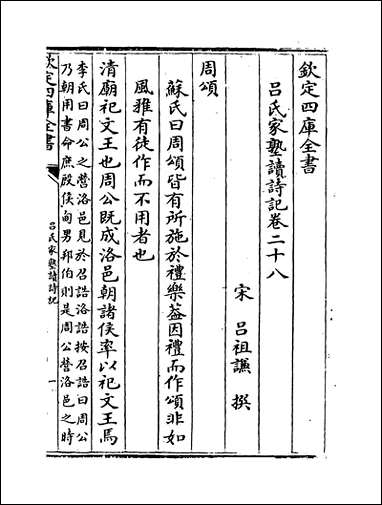 欽定四庫全書
呂氏家塾讀詩記卷二十八
宋 呂祖謙 撰
周頌
蘇氏曰周頌皆有所施於禮樂葢因禮而作頌非如
風雅有徒作而不用者也
清廟祀文王也周公既成洛邑朝諸侯率以祀文王焉
李氏曰周公之營洛邑見於召誥洛誥按召誥曰周公
乃朝用書命庶殷侯甸男邦伯則是周公營洛邑之時
欽定四庫全書
呂氏家塾讀詩記
一